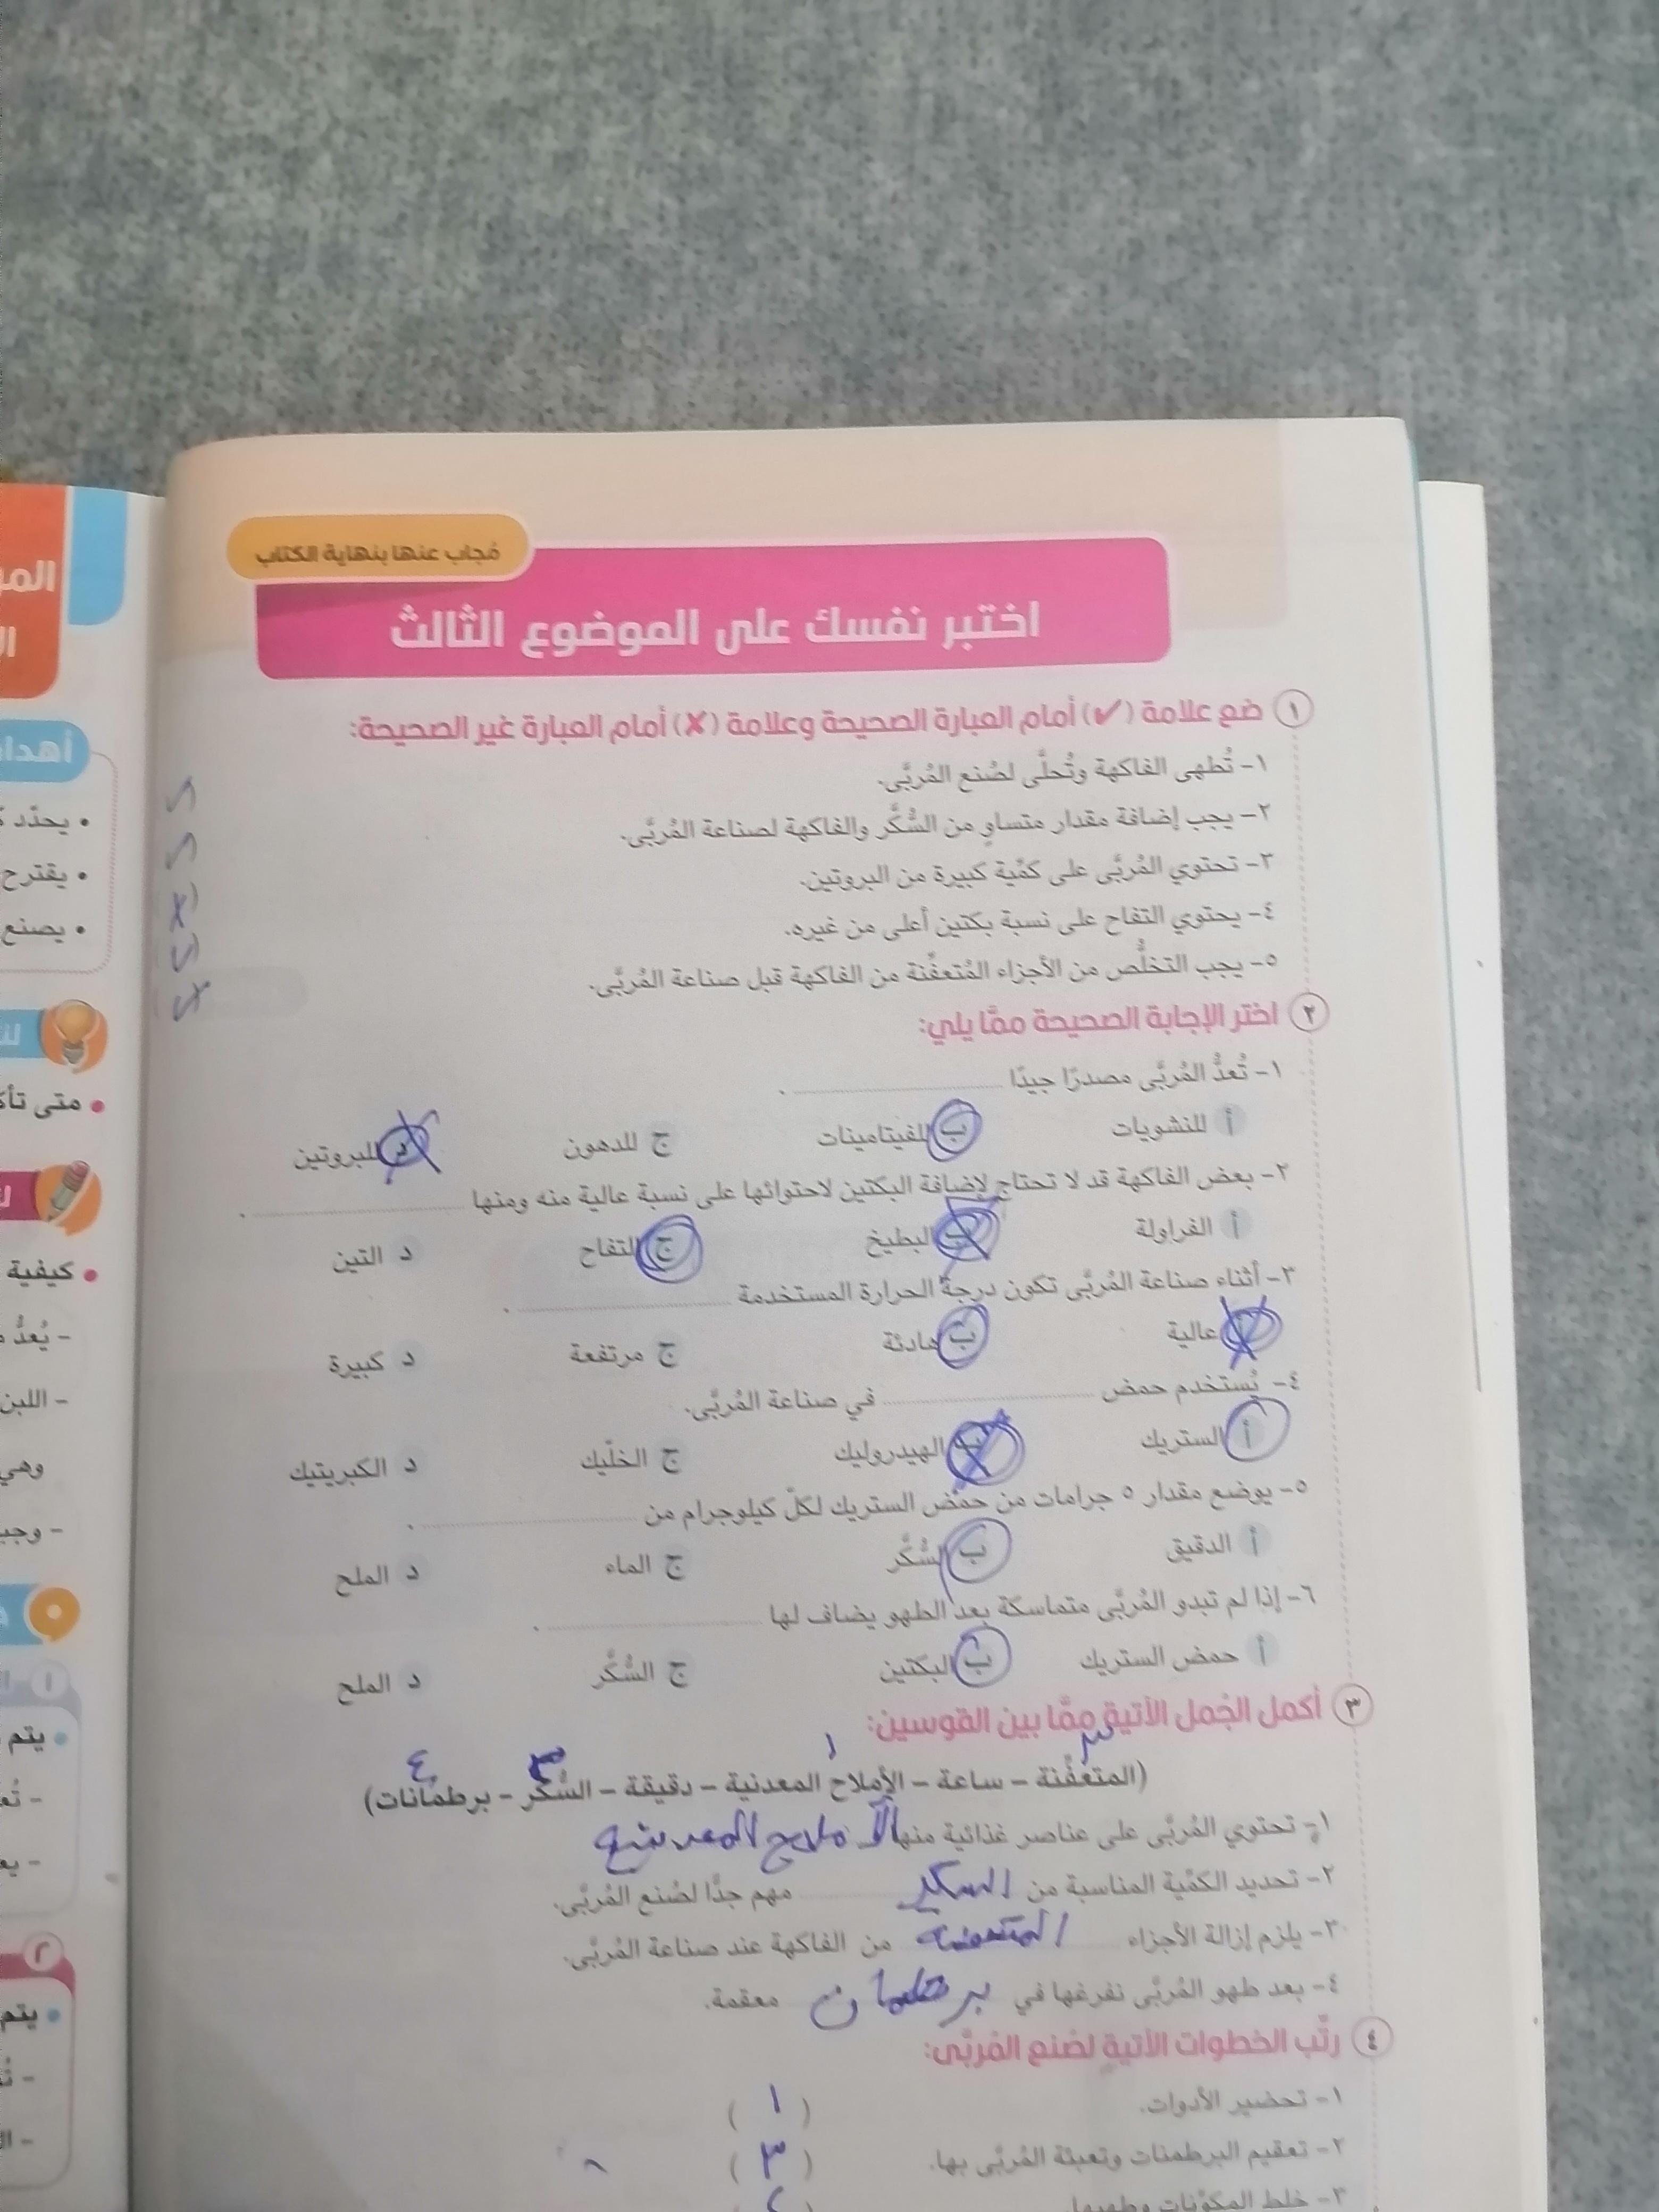 مُجاب عنها بنهاية الكتاب
اختبر نفسك على الموضوع الثالث
١ ضع علامة (✓) أمام العبارة الصحيحة وعلامة (✗) أمام العبارة غير الصحيحة:
١- تُطهى الفاكهة وتُحلَّى لصُنع المُربَّى.
٢- يجب إضافة مقدار متساوٍ من السُّكَّر والفاكهة لصناعة المُربَّى.
٣- تحتوي المُربَّى على كمِّية كبيرة من البروتين.
٤- يحتوي التفاح على نسبة بكتين أعلى من غيره.
٥- يجب التخلُّص من الأجزاء المُتعفِّنة من الفاكهة قبل صناعة المُربَّى.
٢ اختر الإجابة الصحيحة ممَّا يلي:
١- تُعدُّ المُربَّى مصدرًا جيدًا .
أ للنشويات ب للفيتامينات ج للدهون د للبروتين
٢- بعض الفاكهة قد لا تحتاج لإضافة البكتين لاحتوائها على نسبة عالية منه ومنها .
أ الفراولة ب البطيخ ج التفاح د التين
٣- أثناء صناعة المُربَّى تكون درجة الحرارة المستخدمة .
أ عالية ب هادئة ج مرتفعة د كبيرة
٤- يُستخدم حمض في صناعة المُربَّى.
أ الستريك ب الهيدروليك ج الخلّيك د الكبريتيك
٥- يوضع مقدار ٥ جرامات من حمض الستريك لكلّ كيلوجرام من .
أ الدقيق ب السُّكَّر ج الماء د الملح
٦- إذا لم تبدو المُربَّى متماسكة بعد الطهو يضاف لها .
أ حمض الستريك ب البكتين ج السُّكَّر د الملح
٣ أكمل الجُمل الآتية ممَّا بين القوسين:
٣ ١ ٣ ٤
(المتعفِّنة – ساعة – الأملاح المعدنية – دقيقة – السُّكَّر – برطمانات)
١- تحتوي المُربَّى على عناصر غذائية منها الأملاح المعدنية
٢- تحديد الكمِّية المناسبة من السكر مهم جدًّا لصُنع المُربَّى.
٣- يلزم إزالة الأجزاء المتعفنه من الفاكهة عند صناعة المُربَّى.
٤- بعد طهو المُربَّى نفرغها في برطمان معقمة.
٤ رتِّب الخطوات الآتية لصُنع المُربَّى:
١- تحضير الأدوات. (١)
٢- تعقيم البرطمنات وتعبئة المُربَّى بها. (٣)
٣- خلط المكوِّنات وطهيها.
أهدا
• يقترح
• يصنع
• كيفية
- اللبن